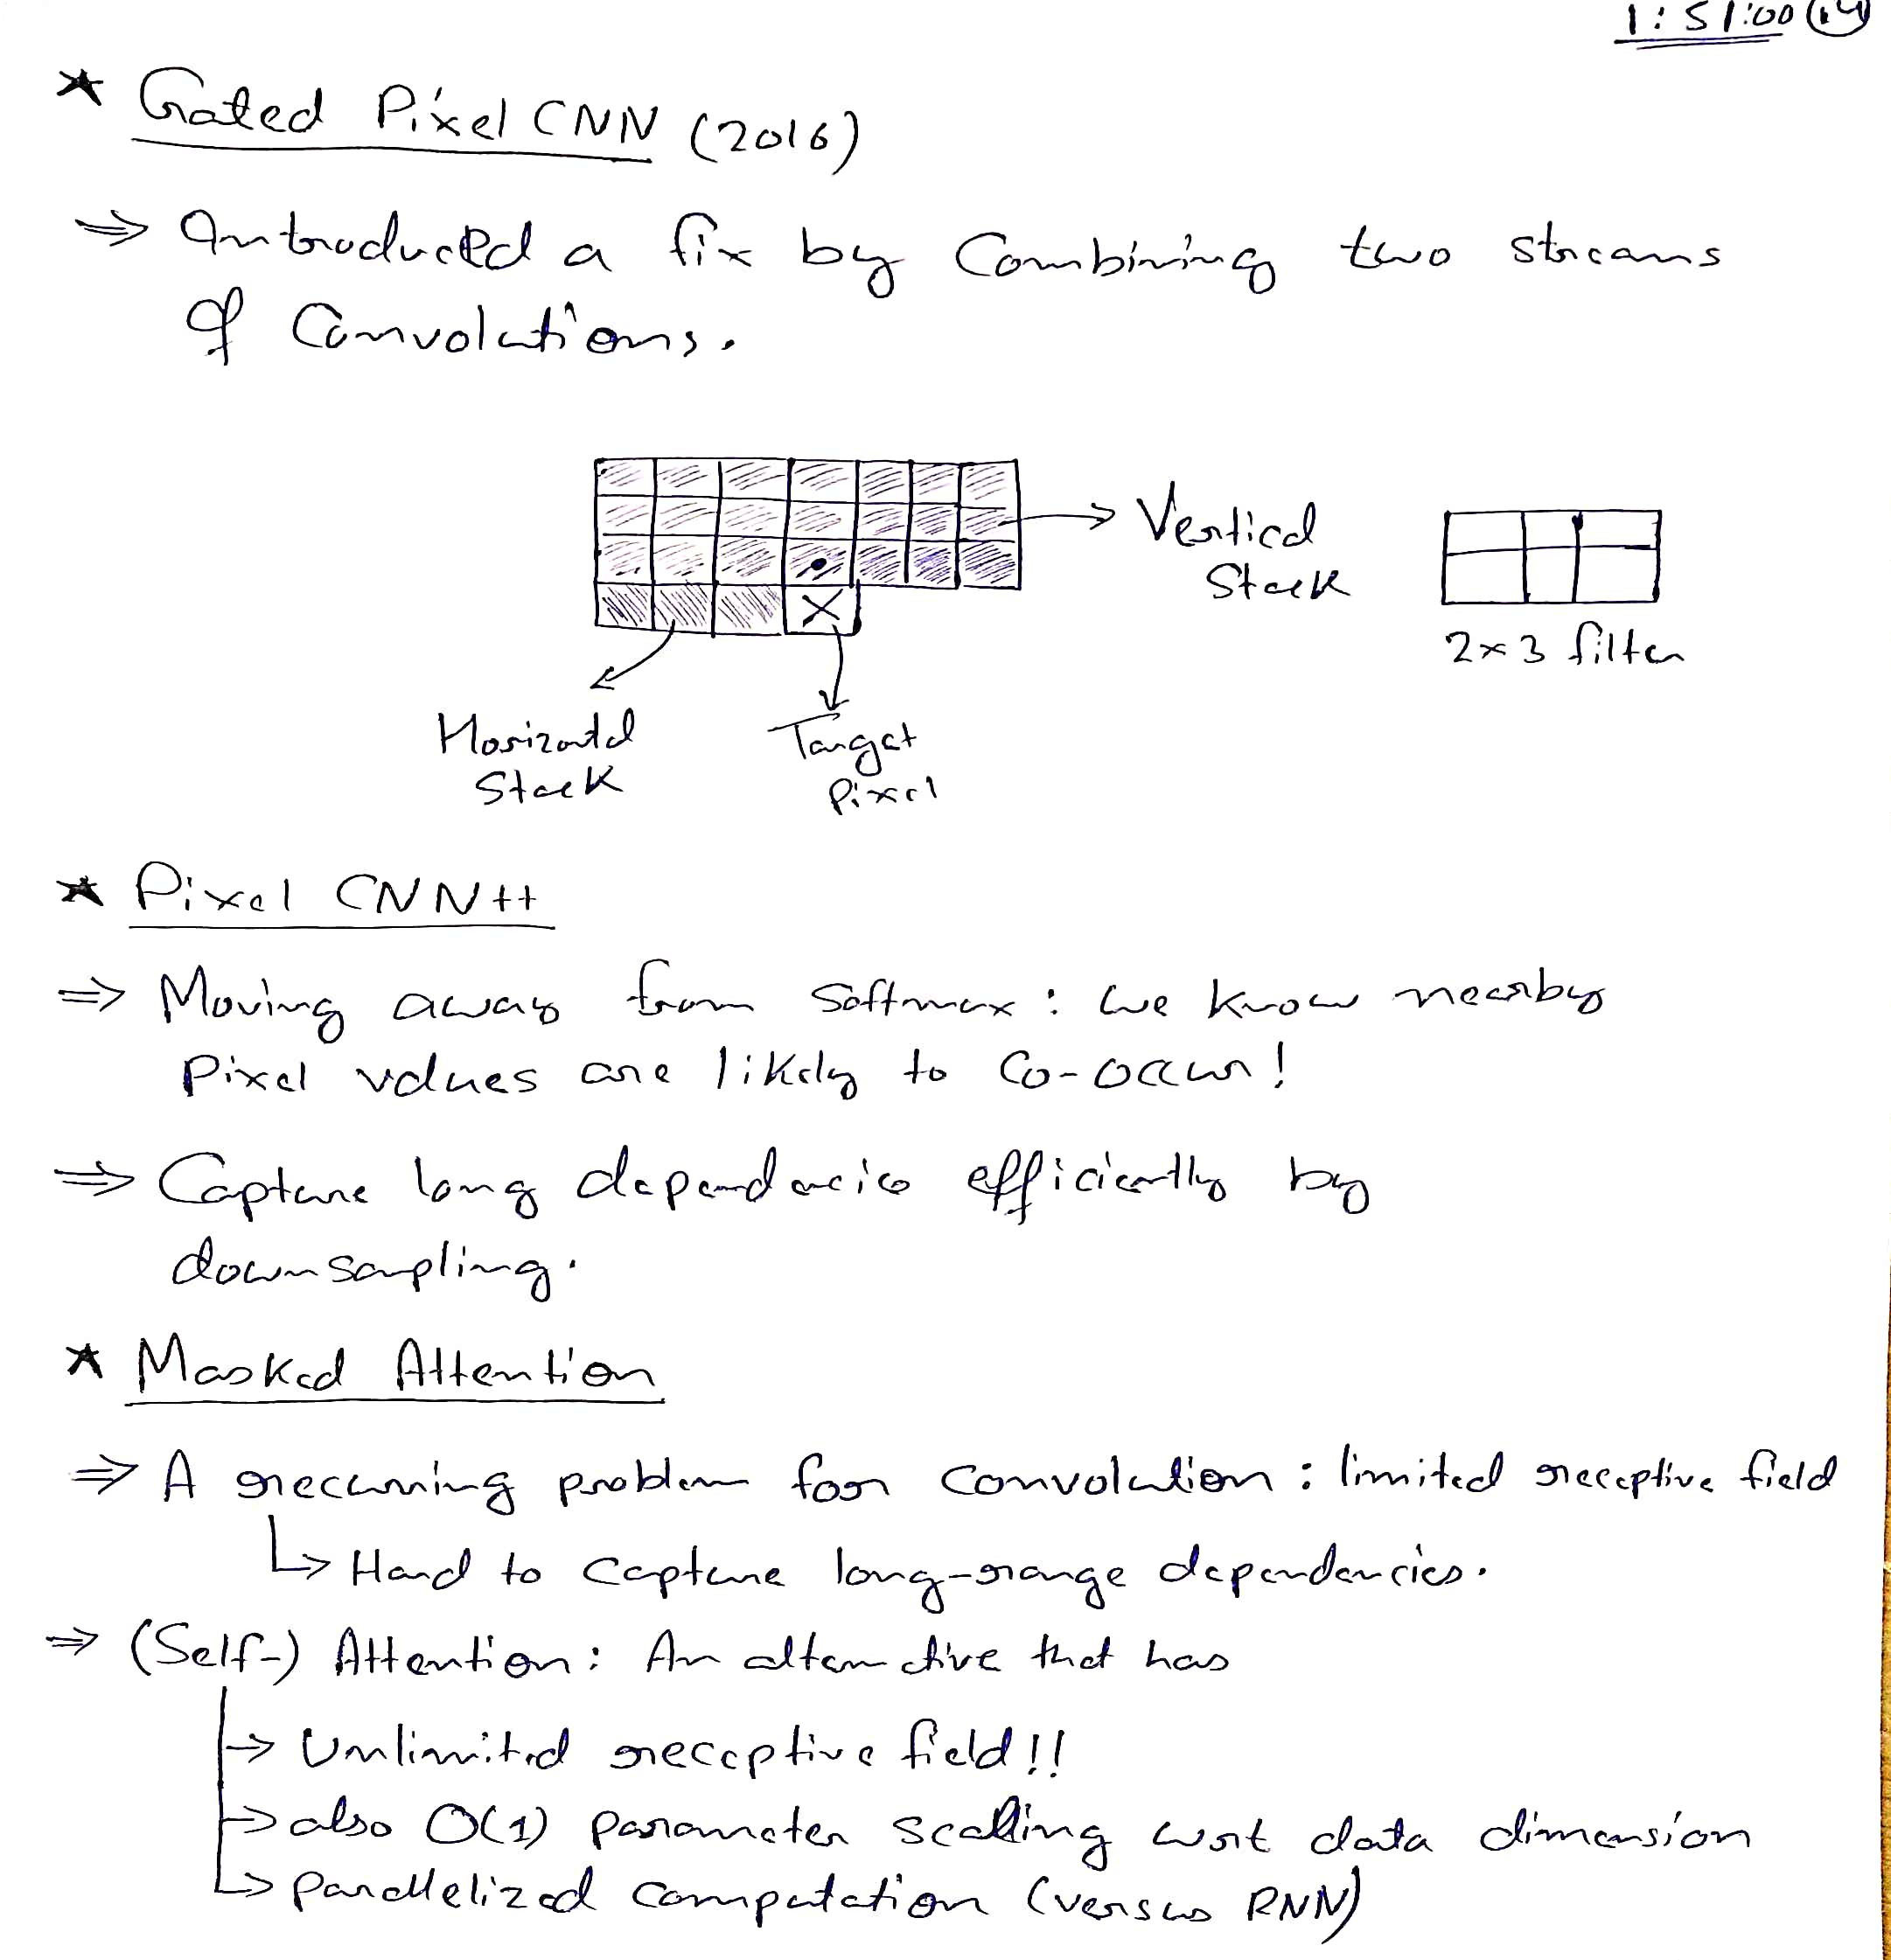 1:51:00
* Gated Pixel CNN (2016)
⇒ Introduced a fix by Combining two streams
of Convolutions.
→ Vertical
Stack
2×3 filter
Horizontal
Stack
Target
Pixel
* Pixel CNN++
⇒ Moving away from Softmax : we know nearby
Pixel values are likely to Co-occur!
⇒ Capture long dependencies efficiently by
downsampling.
* Masked Attention
⇒ A recurring problem for convolution : limited receptive field
↳ Hard to capture long-range dependencies.
⇒ (Self-) Attention : An alternative that has
→ Unlimited receptive field!!
→ also O(1) parameter scaling wrt data dimension
→ Parallelized computation (versus RNN)